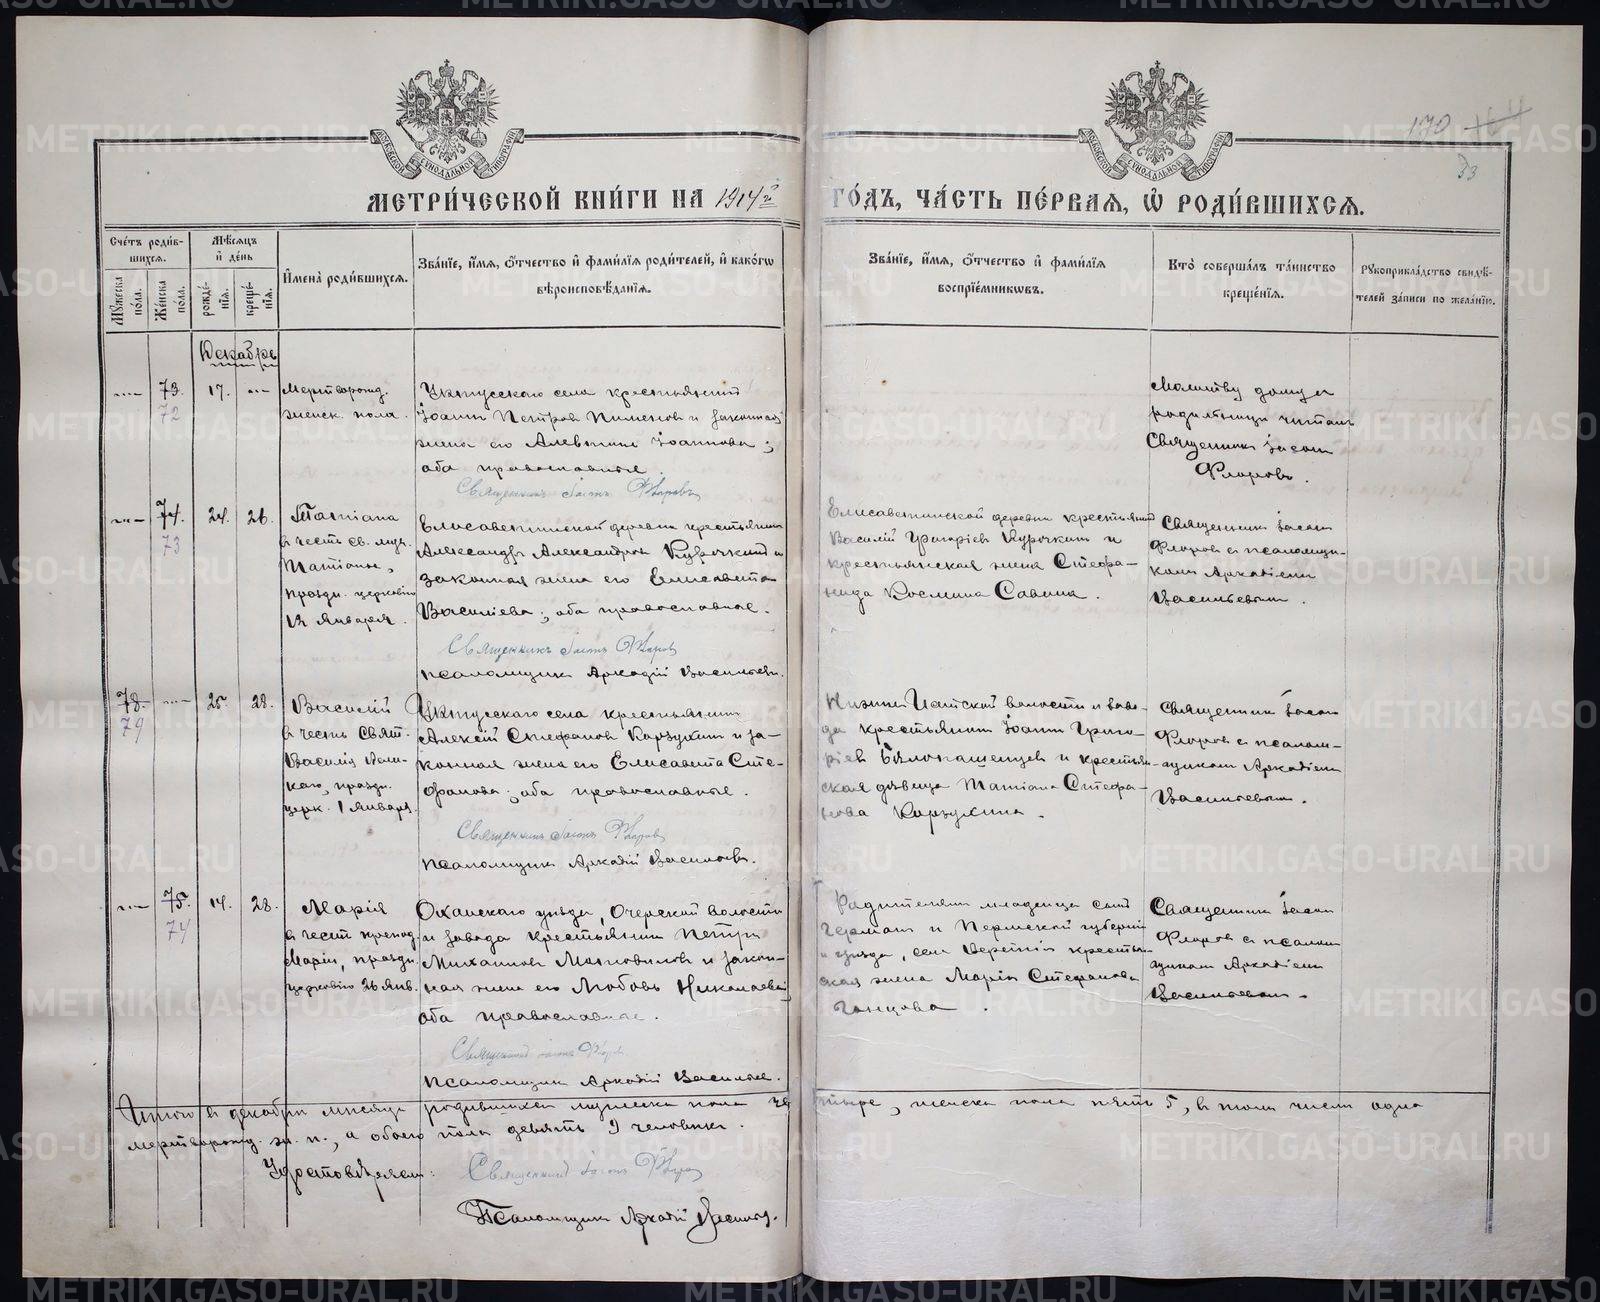 МЕТРИ́ЧЕСКОЙ КНИ́ГИ НА 1914й ГО́ДЪ, ЧА́СТЬ ПЕ́РВАЯ, Ѽ РОДИ́ВШИХСѦ.
170
33
Сче́тъ роди́в-
шихсѧ.
Мѣсѧцъ
и҆ де́нь
Мꙋжеска по́ла.
Же́нска по́ла.
рожде́-
нїѧ.
креще́-
нїѧ.
И҆мена̀ роди́вшихсѧ.
Зва́нїе, и҆́мѧ, ѻ҆́тчество и҆ фами́лїѧ роди́телей, и҆ како́гѡ
вѣроисповѣ́данїѧ.
Зва́нїе, и҆́мѧ, ѻ҆́тчество и҆ фами́лїѧ
воспрїе́мникѡвъ.
Кто̀ соверша́лъ та́инство
креще́нїѧ.
Рꙋкоприкла́дство свидѣ́-
телей за́писи по жела́нїю.
Декабрь
73.
72
17.
Мертворожд.
женск. пола.
Уктусскаго села крестьянинъ
Іоаннъ Петровъ Пименовъ и законная
жена его Алевтина Іоаннова;
оба православные.
Священникъ Іасонъ Флоровъ
Молитву дому и
родильницѣ читалъ
Священникъ Іасонъ
Флоровъ.
74.
73
24.
26.
Татіана
въ честь св. муч.
Татіаны,
праздн. церковію
12 Января.
Елисаветинской деревни крестьянинъ
Александръ Александровъ Курочкинъ и
законная жена его Елисавета
Василіева; оба православные.
Священникъ Іасонъ Флоровъ
псаломщикъ Аркадій Васильевъ.
Елисаветинской деревни крестьянинъ
Василій Григоріевъ Курочкинъ и
крестьянская жена Стефа-
нида Космина Савина.
Священникъ Іасонъ
Флоровъ съ псаломщи-
комъ Аркадіемъ
Васильевымъ.
78.
79
25.
28.
Василій
въ честь Свят.
Василія Вели-
каго, праздн.
церк. 1 Января.
Уктусскаго села крестьянинъ
Алексій Стефановъ Карзухинъ и за-
конная жена его Елисавета Сте-
фанова; оба православные.
Священникъ Іасонъ Флоровъ
псаломщикъ Аркадій Васильевъ.
Нижне Исетской волости и заво-
да крестьянинъ Іоаннъ Григо-
ріевъ Бѣлопашенцевъ и крестьян-
ская дѣвица Татіана Стефа-
нова Карзухина.
Священникъ Іасонъ
Флоровъ съ псалом-
щикомъ Аркадіемъ
Васильевымъ.
75.
74
14.
28.
Марія
въ честь препод.
Маріи, праздн.
церковію 26 Янв.
Оханскаго уѣзда, Очерской волости
и завода крестьянинъ Петръ
Михаиловъ и закон-
ная жена его Любовь Николаева;
оба православные.
Священникъ Іасонъ Флоровъ
псаломщикъ Аркадій Васильевъ.
Родителями младенца сынъ
Германъ и Пермской губерніи
и уѣзда, села крестьян-
ская жена Марія Стефанова
Священникъ Іасонъ
Флоровъ съ псалом-
щикомъ Аркадіемъ
Васильевымъ.
Итого въ декабрѣ мѣсяцѣ родившихся мужеска пола четыре, женска пола пять 5, въ томъ числѣ одна
мертворожд. ж. п., а обоего пола девять 9 человѣкъ.
Удостовѣряемъ: Священникъ Іасонъ Флоровъ
Псаломщикъ Аркадій Васильевъ.
METRIKI.GASO-URAL.RU